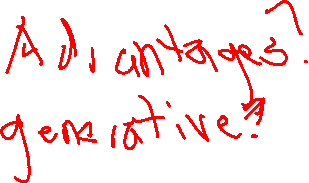 Advantages?
generative?